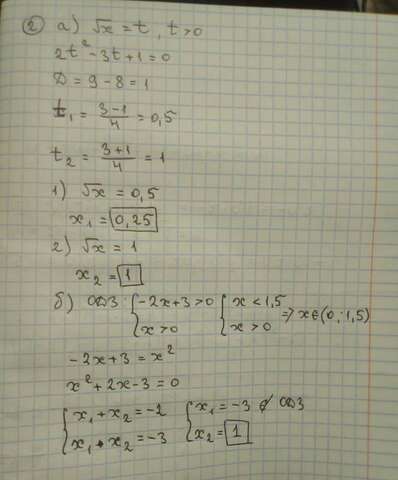 ② a) √x = t, t>0
2t² - 3t + 1 = 0
D = 9 - 8 = 1
t₁ = (3-1)/4 = 0,5
t₂ = (3+1)/4 = 1
1) √x = 0,5
x₁ = 0,25
2) √x = 1
x₂ = 1
б) ОДЗ: { -2x+3>0 { x < 1,5 => x∈(0;1,5)
{ x>0 { x > 0
-2x+3 = x²
x² + 2x - 3 = 0
{ x₁ + x₂ = -2 { x₁ = -3 ∉ ОДЗ
{ x₁ • x₂ = -3 { x₂ = 1